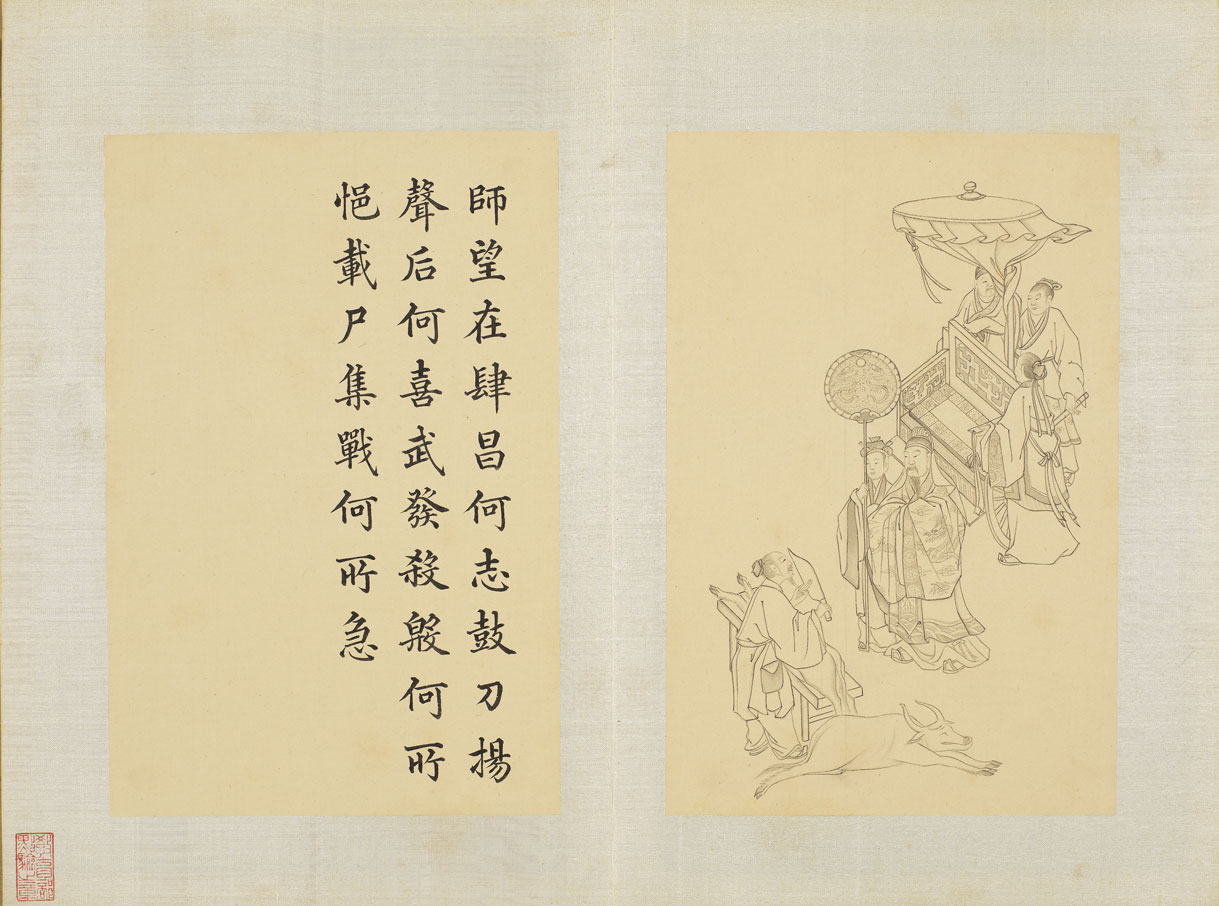 師望在肆昌何志鼓刀揚
聲后何喜武發殺殷何所
悒載尸集戰何所急